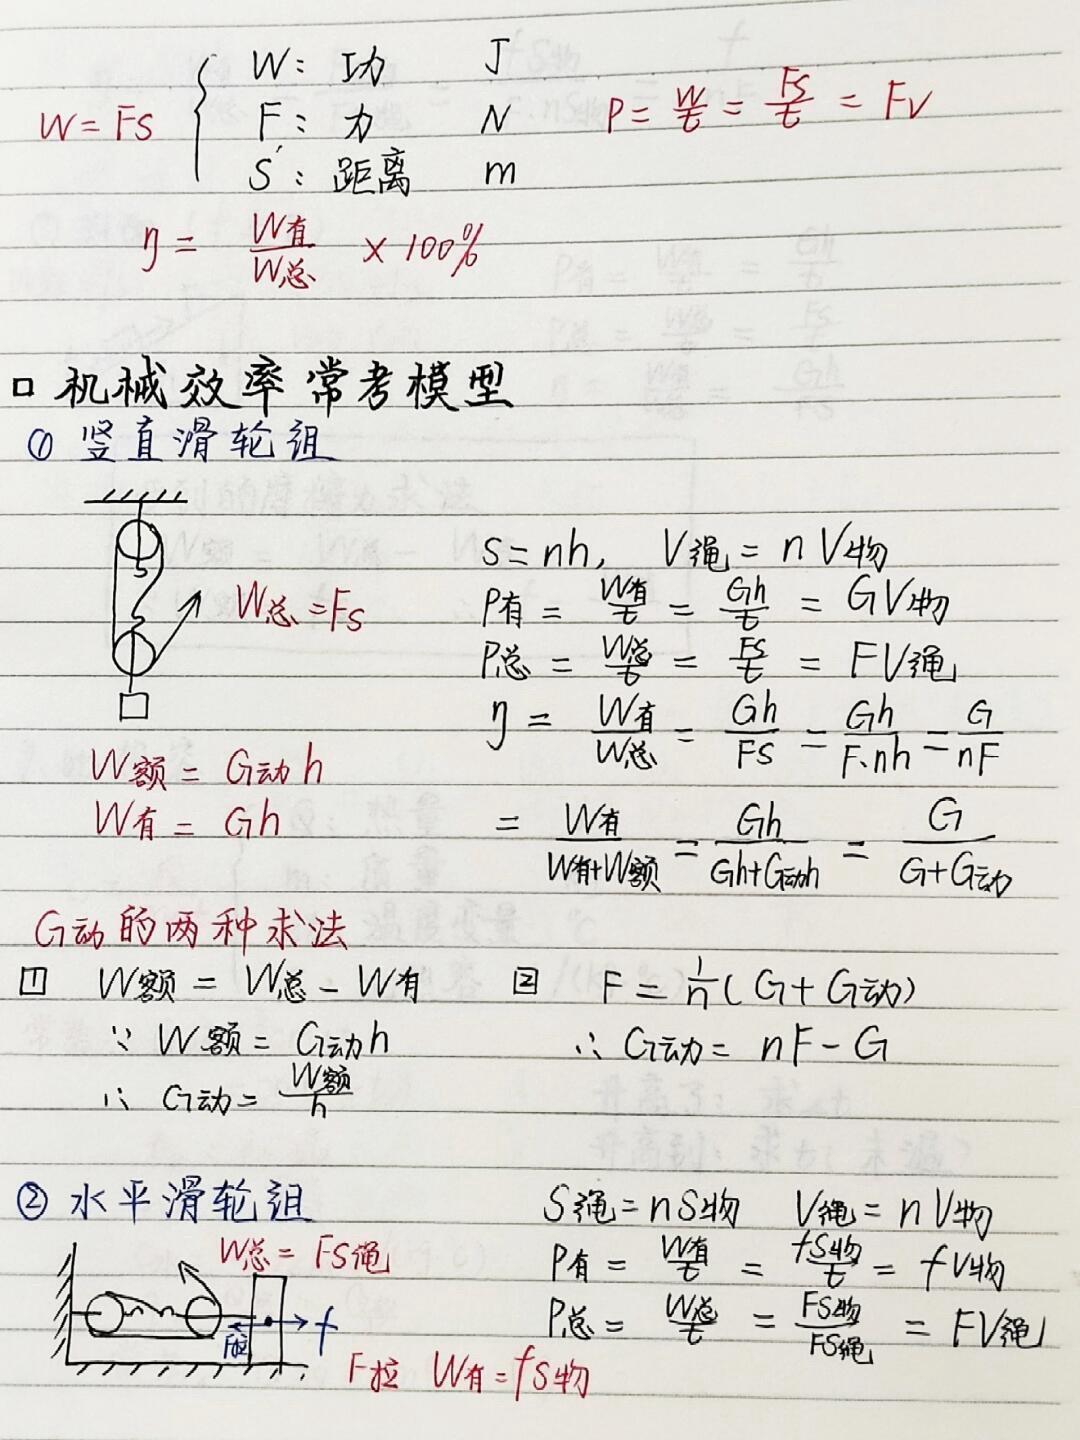 W = FS { W: 功 J
F: 力 N
S: 距离 m
P = W/t = FS/t = FV
η = W有/W总 × 100%
□ 机械效率常考模型
① 竖直滑轮组
W总 = FS
S = nh, V绳 = nV物
P有 = W有/t = Gh/t = GV物
P总 = W总/t = FS/t = FV绳
η = W有/W总 = Gh/FS = Gh/F·nh = G/nF
W额 = G动h
W有 = Gh
= W有/W有+W额 = Gh/Gh+G动h = G/G+G动
G动的两种求法
1 W额 = W总 - W有
∵ W额 = G动h
∴ G动 = W额/h
2 F = 1/n (G + G动)
∴ G动 = nF - G
② 水平滑轮组
W总 = FS绳
F拉 f
F拉 W有 = fS物
S绳 = nS物 V绳 = nV物
P有 = W有/t = fS物/t = fV物
P总 = W总/t = FS物/FS绳 = FV绳